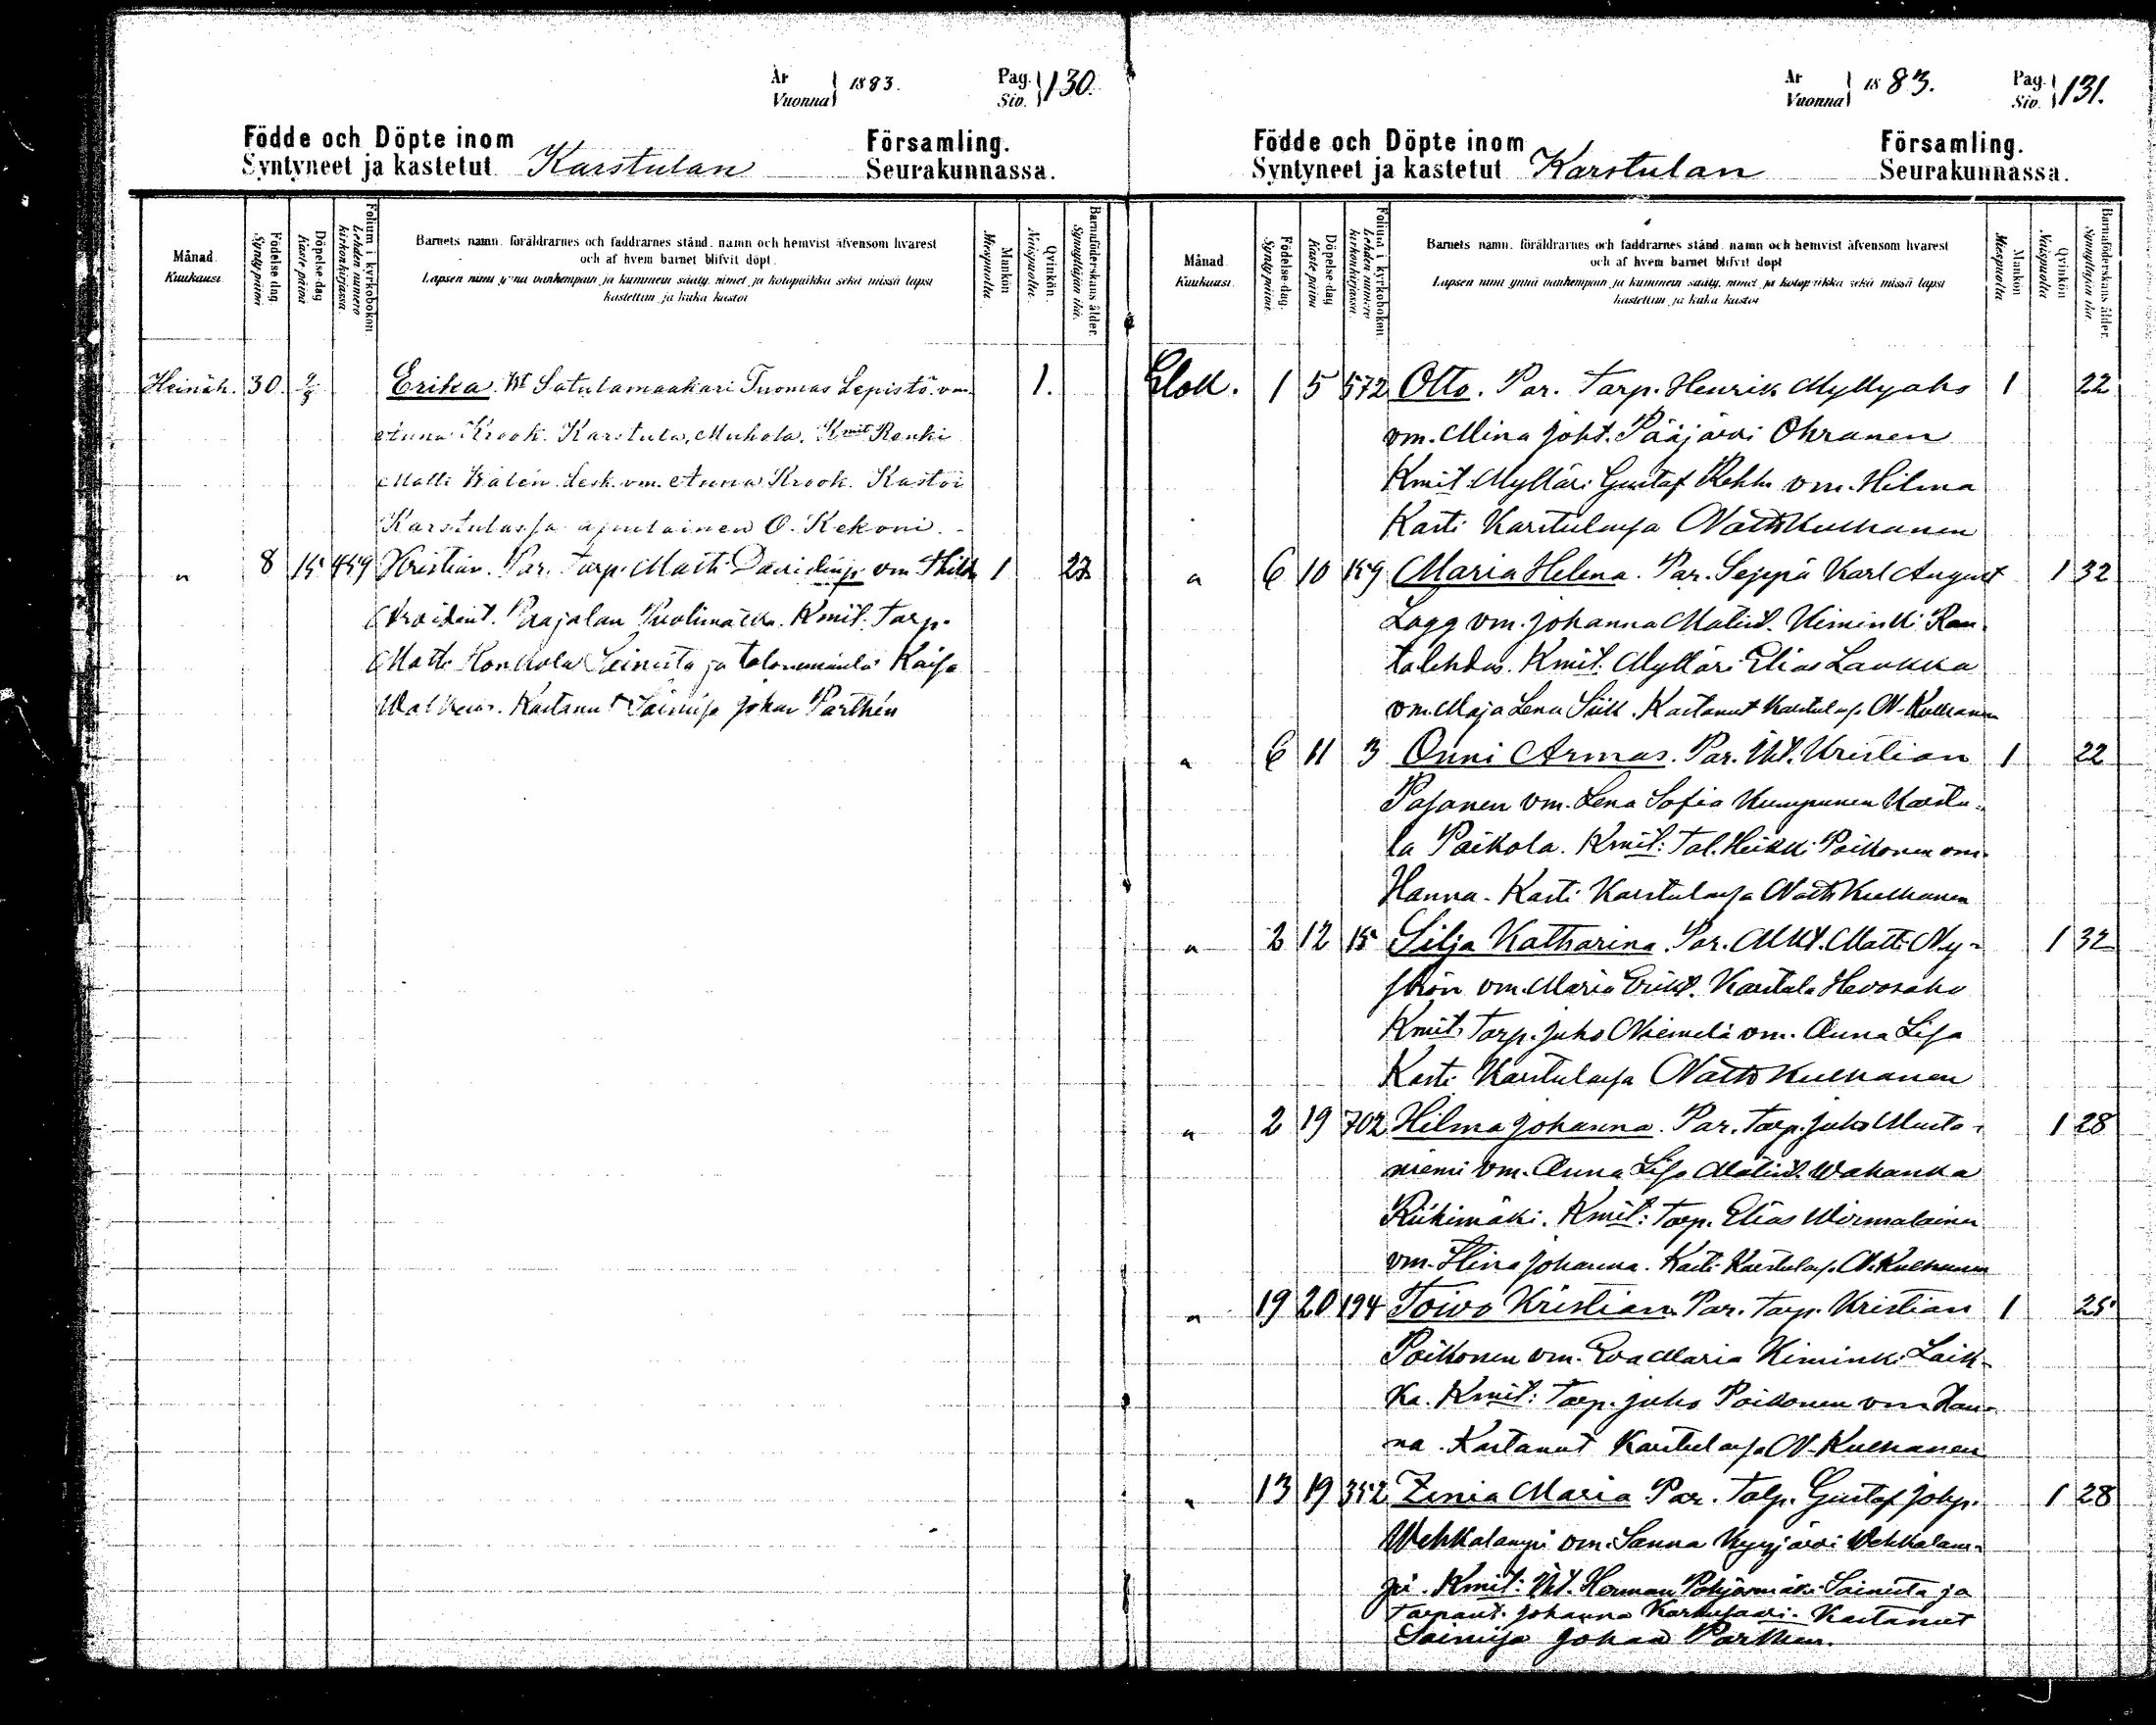 År
Vuonna 1883.
Pag.
Siv. 130.
Födde och Döpte inom
Församling.
Syntyneet ja kastetut Karstulan Seurakunnassa.
Månad.
Kuukausi.
Födelse dag.
Synty päivä
Döpelse-dag
Kaste päivä
Folium i kyrkoboken.
Lehden numero kirkonkirjassa.
Barnets namn, föräldrarnes och faddrarnes stånd, namn och hemvist äfvensom hvarest
och af hvem barnet blifvit döpt.
Lapsen nimi ynnä vanhempain ja kummein sääty, nimet ja kotopaikka sekä missä lapsi
kastettiin ja kuka kastoi
Mankön
Miespuolta.
Qvinkön.
Naispuolta.
Barnaföderskans ålder.
Synnyttäjän ikä.
Heinäk. 30. 9/9 Erika. Satulamaakari Tuomas Lepistö vm. 1.
Anna Krook. Karstula, Muhola. Kmit Renki
Matti Walén Lesk. vm. Anna Krook. Kastoi
Karstulassa apulainen O. Kekoni.
" 8 15 459 Kristian. Par. Tarp. Matti Davidinp. vm 1 23
Arvidint. Paajalan Puolimatka. Kmit. Tarp.
Matti Konkola Soinista ja talonemäntä Kaisa
Kastanut Soinissa Johan Parthén
År
Vuonna 1883.
Pag.
Siv. 131.
Födde och Döpte inom
Församling.
Syntyneet ja kastetut Karstulan Seurakunnassa.
Månad
Kuukausi.
Födelse-dag.
Synty päivä.
Döpelse-dag
Kaste päivä
Folium i kyrkoboken
Lehden numero kirkonkirjassa.
Barnets namn, föräldrarnes och faddrarnes stånd, namn och hemvist äfvensom hvarest
och af hvem barnet blifvit döpt
Lapsen nimi ynnä vanhempain ja kummein sääty, nimet ja kotopaikka sekä missä lapsi
kastettiin ja kuka kastoi
Mankön
Miespuolta
Qvinkön
Naispuolta
Barnaföderskans ålder.
Synnyttäjän ikä.
Elok. 1 5 572 Otto. Par. Tarp. Henrik Myllyaho 1 22
vm. Mina Joht. Pääjärvi Ohranen
Kmit. Mylläri Gustaf Rekh vm. Hilma
Kasti Karstulassa Matts Kulhanen
" 6 10 159 Maria Helena. Par. Seppä Karl August 1 32
Lagg vm. Johanna Matint. Kiminki Ran-
talehdo. Kmit. Mylläri Elias Laukka
vm. Maja Lena Siik. Kastanut Karstulassa M. Kulhanen
" 6 11 3 Onni Armas. Par. Itt. Kristian 1 22
Pasanen vm. Lena Sofia Kumpunen Karstu-
la Poikola. Kmit: Tal. Heikki Poikonen vm.
Hanna. Kasti Karstulassa Matts Kulhanen
" 2 12 15 Silja Katharina. Par. Matti Ny- 1 32
ström vm. Maria Erikt. Karstula Hevosaho
Kmit. Tarp. Juho Niemelä vm. Anna Lisa
Kasti Karstulassa Matts Kulhanen
" 2 19 702 Hilma Johanna. Par. Tarp. Juho Musta- 1 28
niemi vm. Anna Lisa Matint. Wahanka
Riikimäki. Kmit: Tarp. Elias Wirmalainen
vm. Stina Johanna. Kasti Karstulassa M. Kulhanen
" 19 20 194 Toivo Kristian. Par. Tarp. Kristian 1 25
Poikonen vm. Eva Maria Kiminki Laik-
ka. Kmit: Tarp. Juho Poikonen vm Han-
na. Kastanut Karstulassa M. Kulhanen
" 13 19 352 Zenia Maria Par. Talp. Gustaf Johp. 1 28
Wehkalampi vm. Sanna Kyyjärvi Wehkalam-
pi. Kmit: Itt. Herman Pohjanmäki Soinista ja
Tarpant. Johanna Karhusaari. Kastanut
Soinissa Johan Parthen.